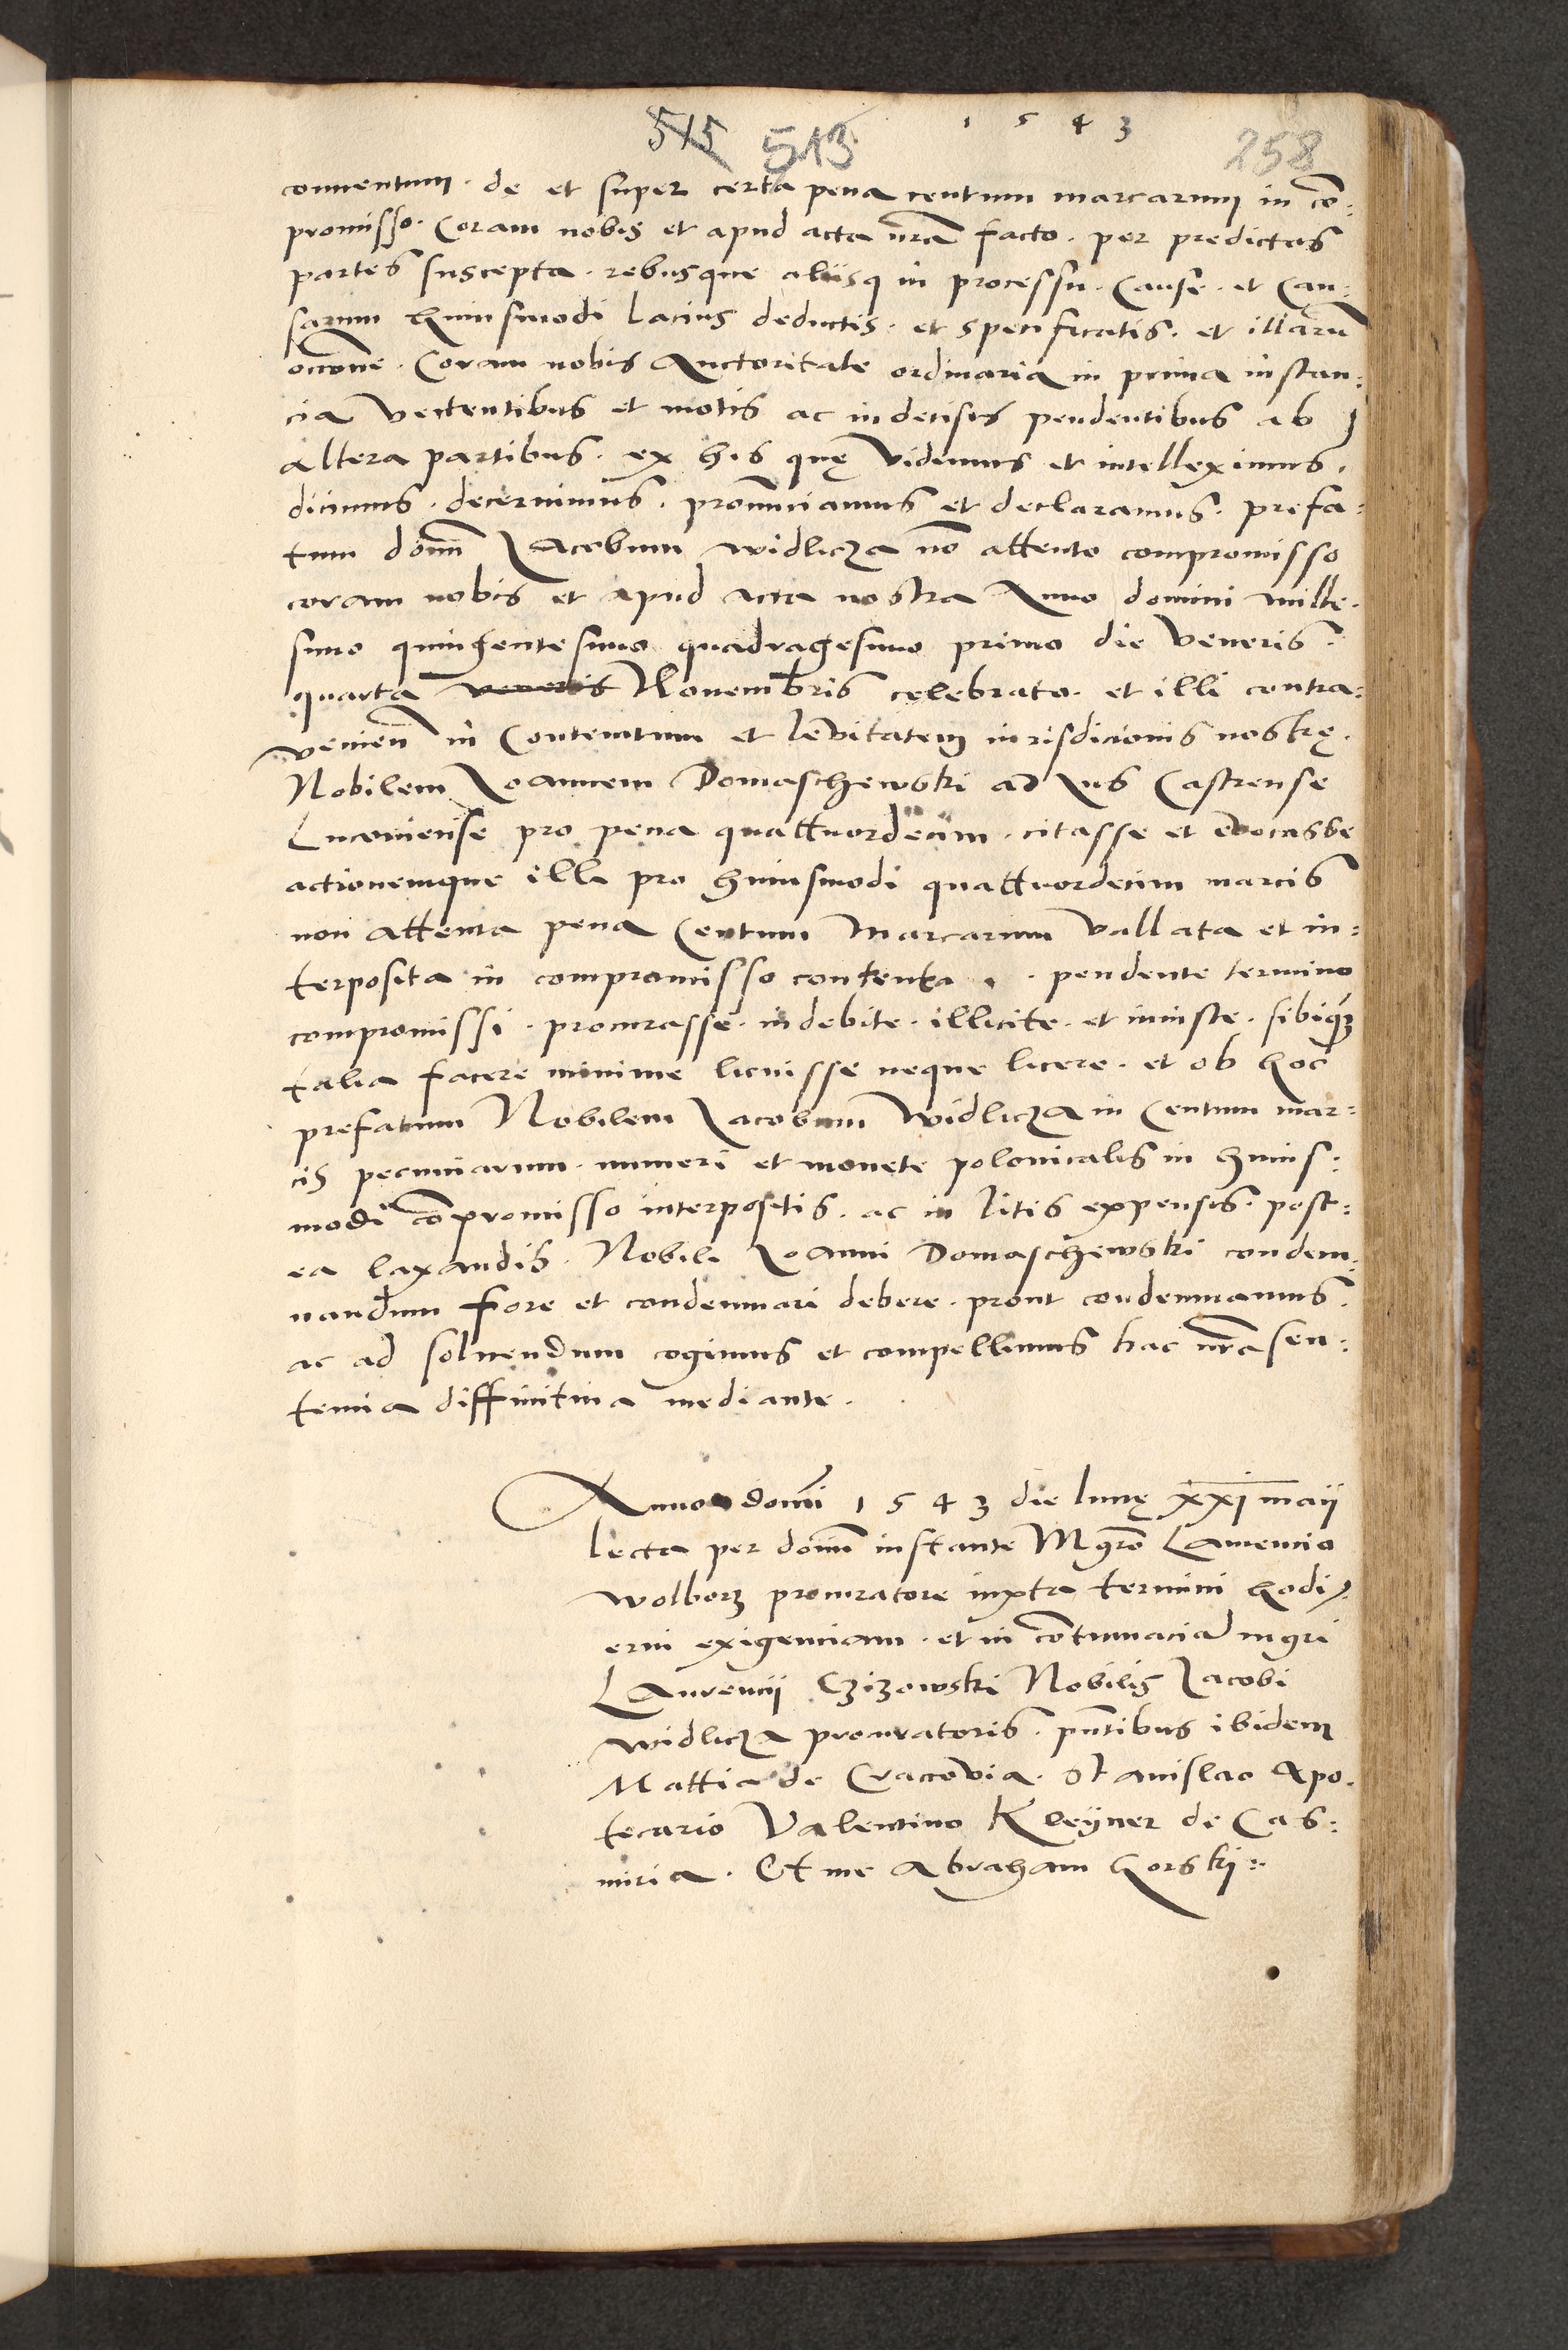 1 5 4 3
515 513 258
conuentum. de et super certa pena centum marcarum in co͞:
promisso. Coram nobis et apud acta nr̃a facto. per predictas
partes suscepta. rebusque alijsq in processu. Cause. et Cau:
sarum huiusmodi lacius deductis. et specificatis. et illarũ
occõne. Coram nobis Auctoritate ordinaria in prima instan:
cia vertentibus et motis ac indecisis pendentibus ab
altera partibus. ex his quę vidimus et intelleximus.
dicimus. decernimus. pronunciamus et declaramus. prefa:
tum dom̃ Jacobum Widlicza nõ attento compromisso
coram nobis et apud acta nostra Anno domini mille.
simo quingentesimo quadragesimo primo die Veneris.
quarta veneris Nouembris celebrato. et illi contra:
venien̄ in Contemtum et levitatem iurisdicionis nostrę.
Nobilem Joannem Domaschewski ad Jus Castrense
Lucouiense pro pena quattuordecim. citasse et euocasse
actionemque illi pro huiusmodi quattuordecim marcis
non attenta pena Centum Marcarum Vallata et in:
terposita in compromisso contenta. pendente termino
compromissi. procurasse. indebite. illicite. et iniuste. sibiq;
talia facere minime licuisse neque licere. et ob hoc
prefatum Nobilem Jacobum Widlicza in Centum mar:
cis pecuniarum. numeri et monete polonicalis in huius:
modi cõpromisso interpositis. ac in litis expensis. post:
ea taxandis. Nobili Joanni Domaschewski condem:
nandum fore et condemnari debere. prout condemnamus.
ac ad soluendum cogimus et compellimus hac nr̃a sen:
tencia diffinitiua mediante.
Anno domĩ 1 5 4 3 die lunę xxj maij
lecta per dom̃ instante Mgr̃o Laurencio
Wolborz procuratore iuxta termini hodi:
erni exigenciam. et in cõtumaciã mgri
Laurencij Czizowski Nobilis Jacobi
Widlicza procuratoris. pñtibus ibidem
Mattia de Cracovia. Stanislao Apo:
tecario Valentino Kleyner de Cas:
miria. Et me Abraham Gorskj: